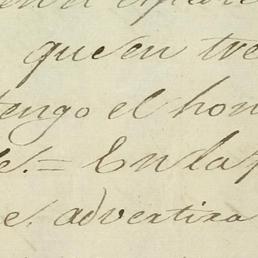 que en tre
tengo el hon
e.= En la
e. advertira